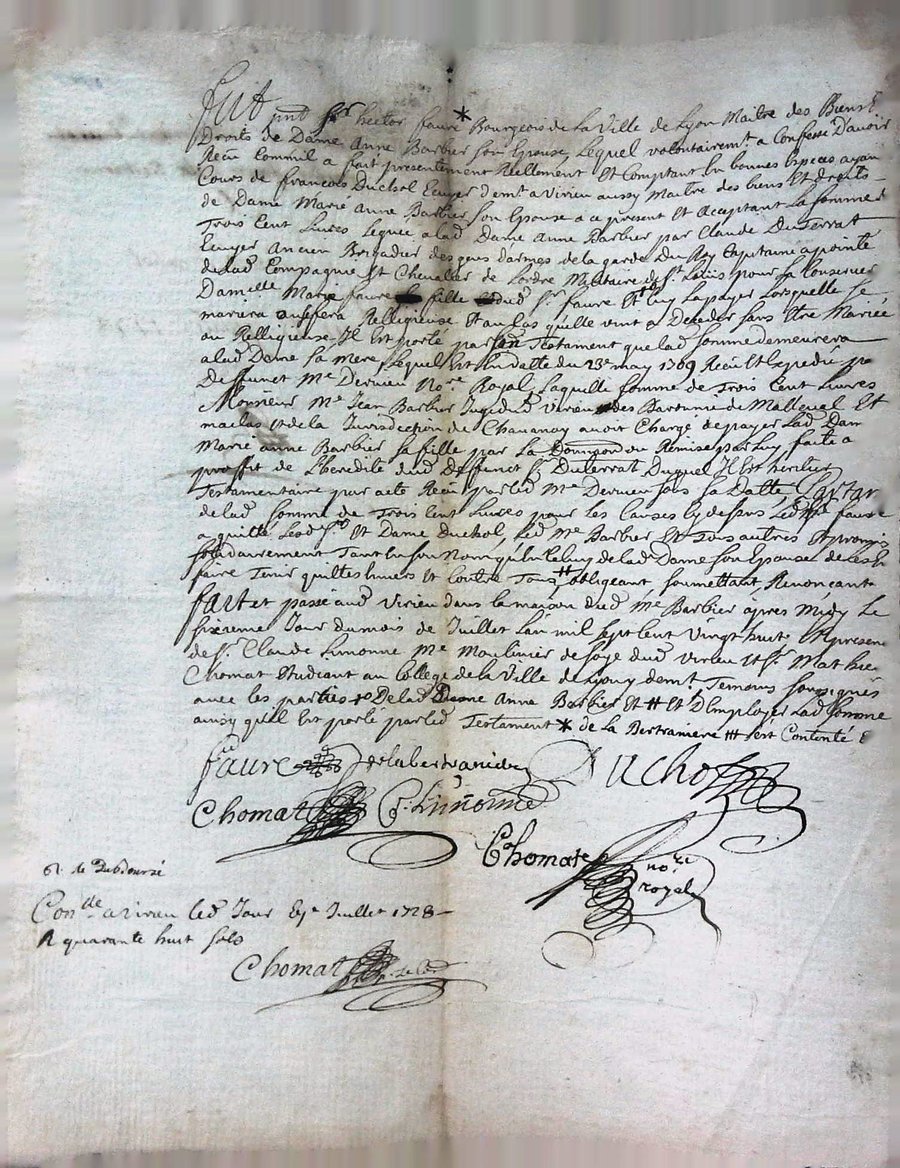 fut pnt Sr hector faure * Bourgeois de La Ville de Lyon Maitre des Biens &
Droits de Dame Anne Barbier Son Epouse, Lequel volontairemt a Confessé D'avoir
Reçu Comme il a fait presentement Réellement Et Comptant En bonnes Espèces ayan
Cours de francois Duchol Ecuyer Demt a Virieu aussy Maitre des biens Et droits
de Dame Marie Anne Barbier Son Epouse a ce present et acceptant La Somme de
Trois Cent Livres Leguée a lad Dame Anne Barbier par Claude Duterrat
Ecuyer Ancien Brigadier des gens darmes de la garde du Roy Capitaine apointé
de lad Compagnie Et Chevalier de Lordre Militaire de St Loüis pour la Conserver
Damelle Marie faure fille dud Sr faure Et Luy La payer Lorsquelle Se
mariera ou Sefera Relligieuse Et au Cas quelle vint a Deceder Sans Etre Mariée
ou Relligieuse Il Est porté par Son Testament que lad Somme demeurera
a lad Dame Sa Mere, Lequel Est En datte du 23e may 1709 Reçu Et Expedié pa
Deffunct Me Dervieu Nore Royal, Laquelle Somme de Trois Cent Livres
Monsieur Me Jean Barbier Juge dud Virieu des Baronnie de Malleval Et
maclas & de la Jurisdiction de Chavanay avoit Charge de payer Lad Dam
Marie anne Barbier Sa fille par La ou Remise par Luy faite a
proffit de L'heredité dud Deffunct Sr Duterrat Duquel Il Est heritier
Testamentaire par acte Reçu par led Me Dervieu Sous Sa Datte, Partan
de lad Somme de Trois Cent Livres pour les Causes Cy dessus Led Sr faure
a quitté Lesd Sr Et Dame Duchol, Led Me Barbier Et Tous autres Et promis
Solidairement Tant En Son Nom qu'En Celuy de lad Dame Son Epouse de Les En
faire Tenir quittes Envers Et Contre Tous # obligeant Soumettant Renonçant
fait et passé aud Virieu dans la maison dud Me Barbier après Midy Le
Sixieme Jour du mois de Juillet Lan mil Sept Cent Vingt huit En presence
de Sr Claude Limonne Me Moulinier de Soye dud Virieu Et Sr Mathie
Chomat Etudiant au College de la Ville de Lyon y demt Temoins Soussignés
avec les parties & De lad Dame Anne Barbier Et # Et D'Employer Lad Somme
aussy quil Est porté par led Testament * de la Bertraniere # Est Contenté &
faure de la bertraniere Duchol
Chomat C: Limonne
Chomat nore royal
6s de Debourcé
Conlé a virieu led Jour 6e Juillet 1728
R quarante huit Sols
Chomat